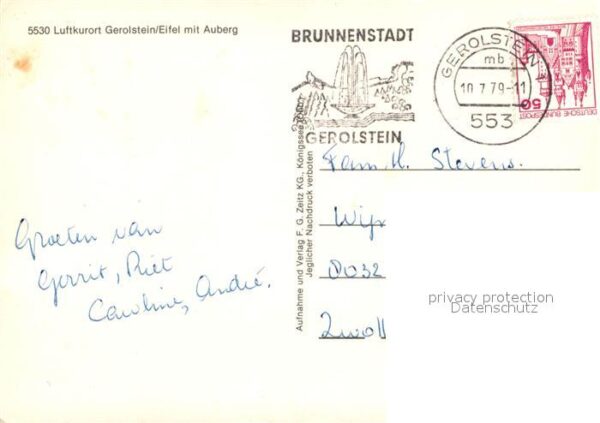 5530 Luftkurort Gerolstein/Eifel mit Auberg
BRUNNENSTADT
GEROLSTEIN
GEROLSTEIN
mb
10.7.79-11
553
50
DEUTSCHE BUNDESPOST
Aufnahme und Verlag F. G. Zeitz KG., Königssee/Obb.
Jeglicher Nachdruck verboten
Fam. H. Stevens.
Zwoll
privacy protection
Datenschutz
Groeten van
Gerrit, Riet
Caroline, André.